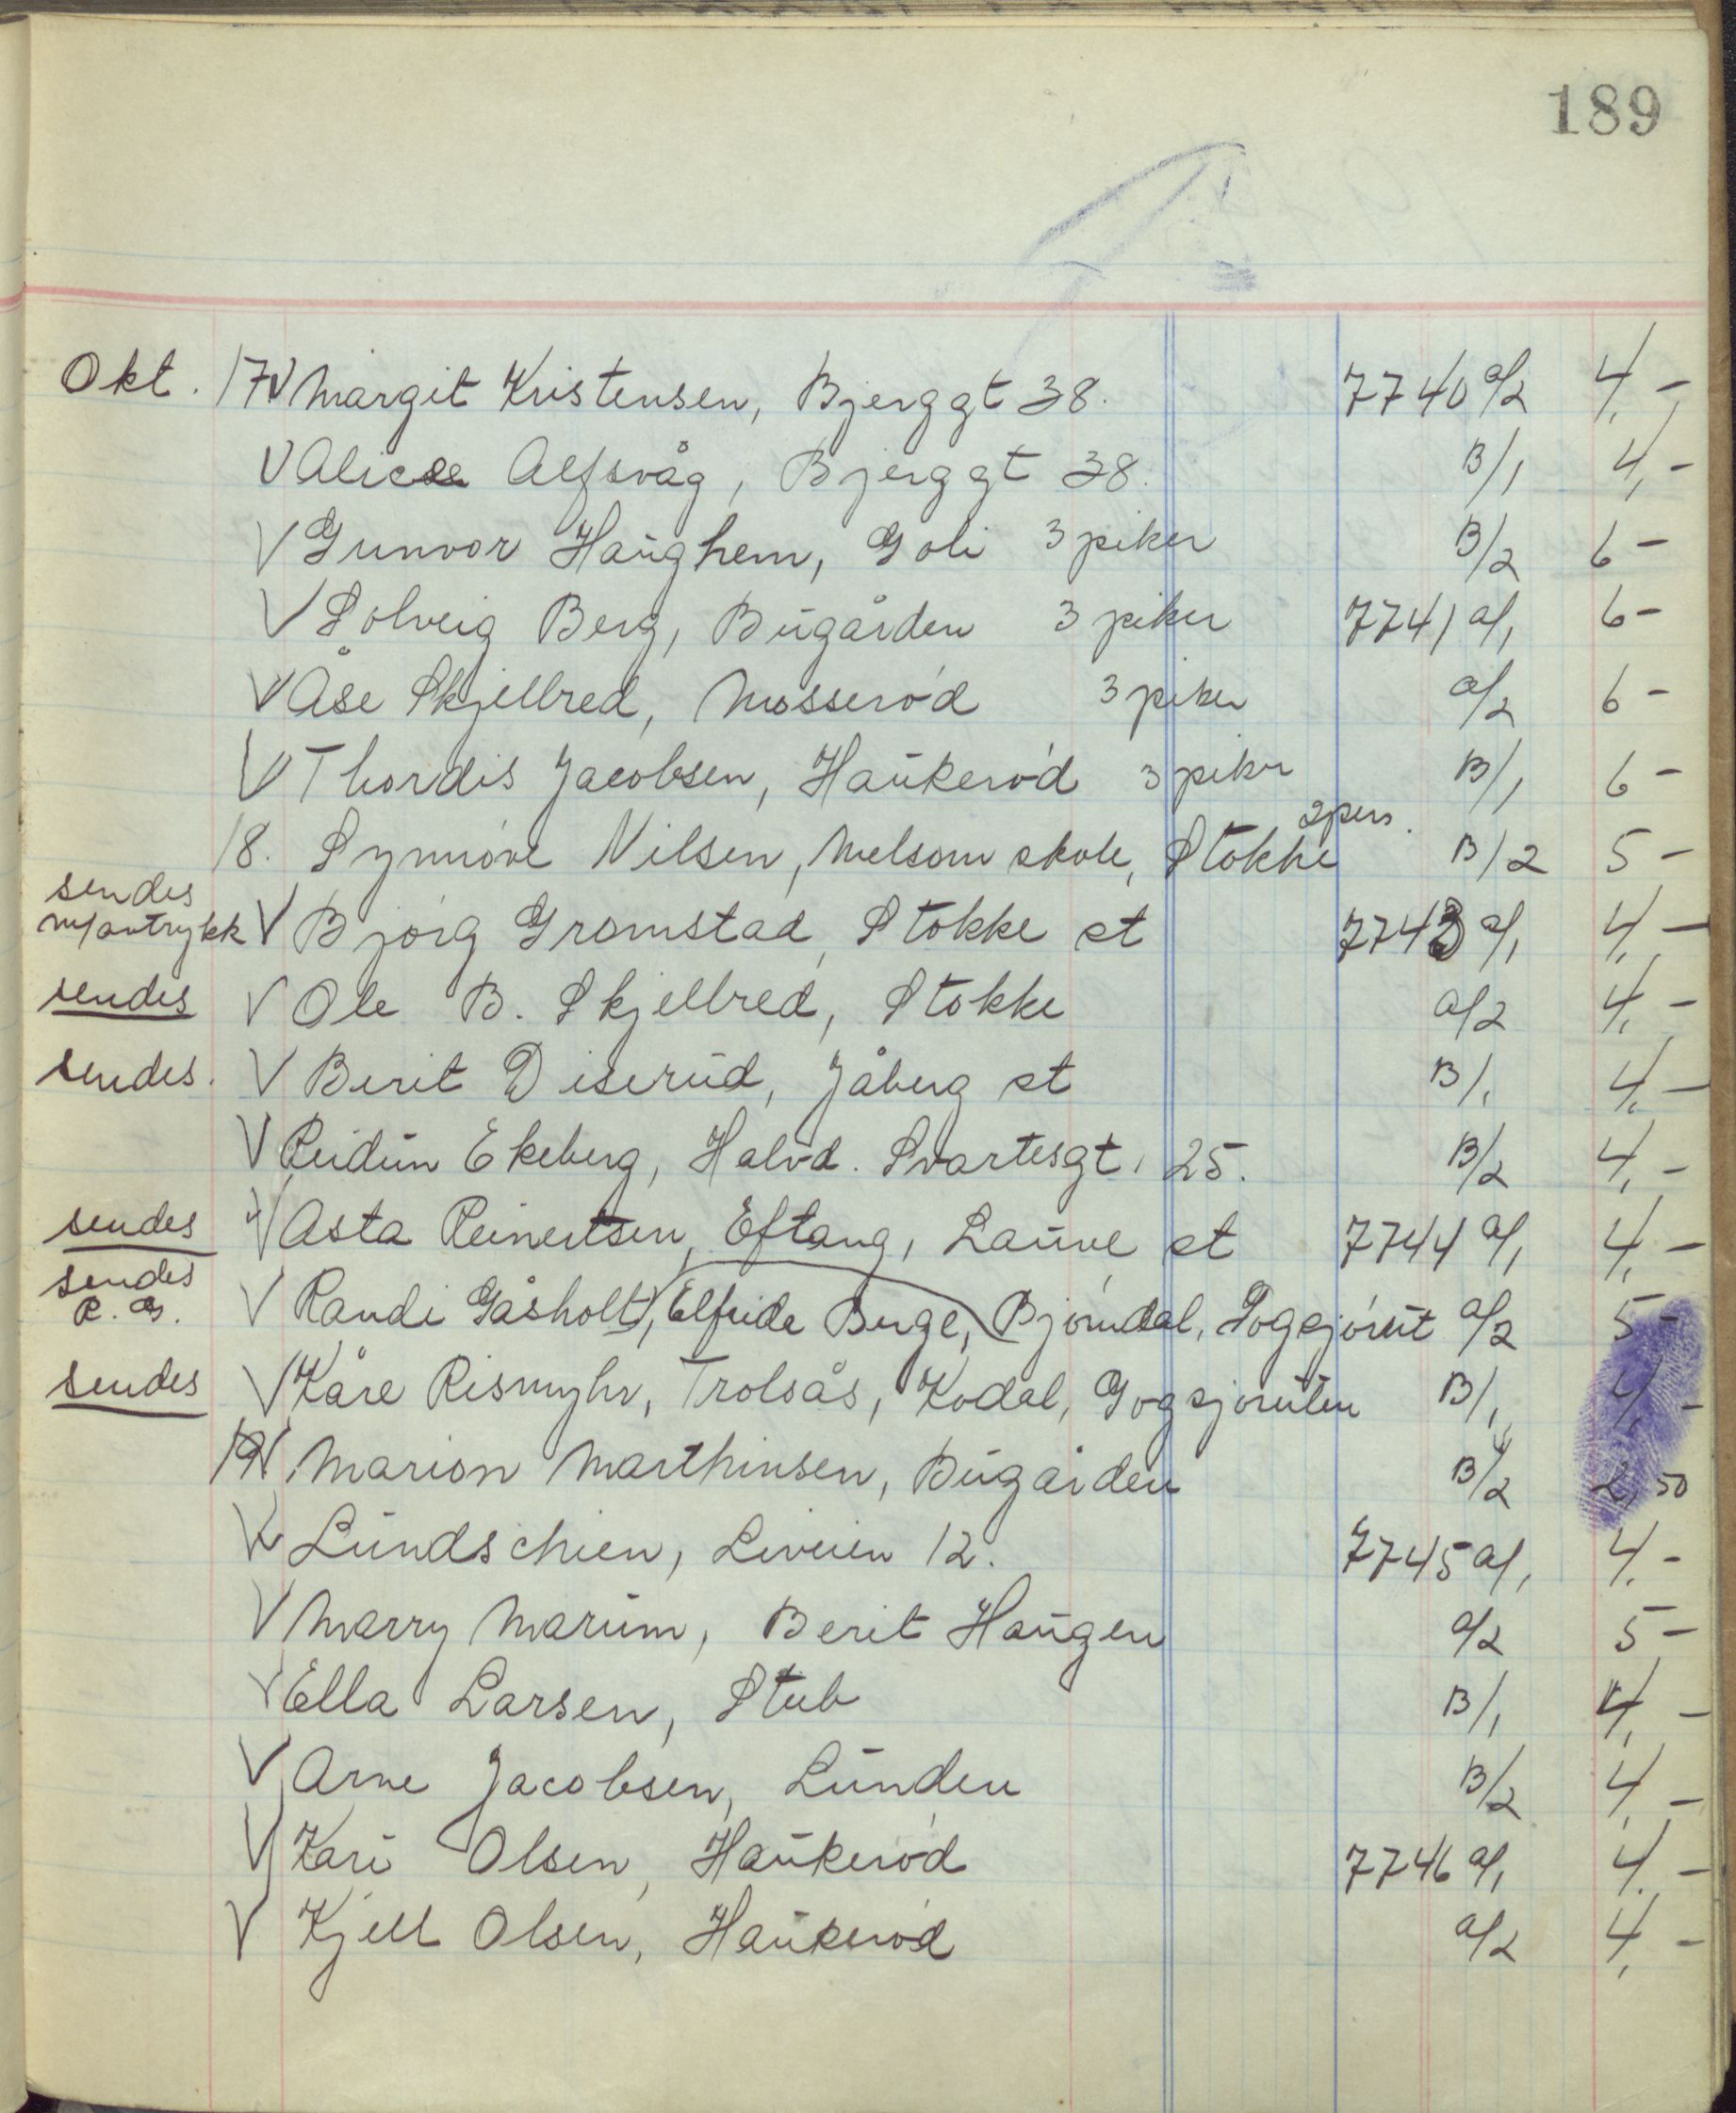 189
Okt. 17 V Margit Kristensen, Bjerggt 38. 7740 a/2 4,-
V Alice Alfsvåg, Bjerggt 38. B/1 4,-
V Gunvor Haughem, Goli 3 piker B/2 6-
V Solveig Berg, Bugården 3 piker 7741 a/1 6-
V Åse Skjellred, Mosserød 3 piker a/2 6-
V Thordis Jacobsen, Haukerød 3 piker B/1 6-
2 pers.
18. Synnöve Nilsen, Melsom skole, Stokke B/2 5-
sendes
m/avtrykk V Bjørg Gromstad, Stokke st 7743 a/1 4,-
sendes V Ole B. Skjellred, Stokke a/2 4,-
sendes. V Berit Diserud, Jåberg st B/1 4,-
V Reidun Ekeberg, Halvd. Svartesgt. 25. B/2 4,-
sendes V Asta Reinertsen, Eftang, Lauve st 7744 a/1 4,-
sendes
R. G. V Randi Gåsholt, Elfride Berge, Bjørndal, Gogsjørut a/2 5-
sendes V Kåre Rismyhr, Trolsås, Kodal, Gogsjøruten B/1 4,-
19 V Marion Marthinsen, Bugården B/2 2,50
V Lundschien, Liveien 12. 7745 a/1 4,-
V Marry Marum, Berit Haugen a/2 5-
V Ella Larsen, Stub B/1 4,-
V Arne Jacobsen, Lunden B/2 4,-
V Kari Olsen, Haukerød 7746 a/1 4,-
V Kjell Olsen, Haukerød a/2 4,-